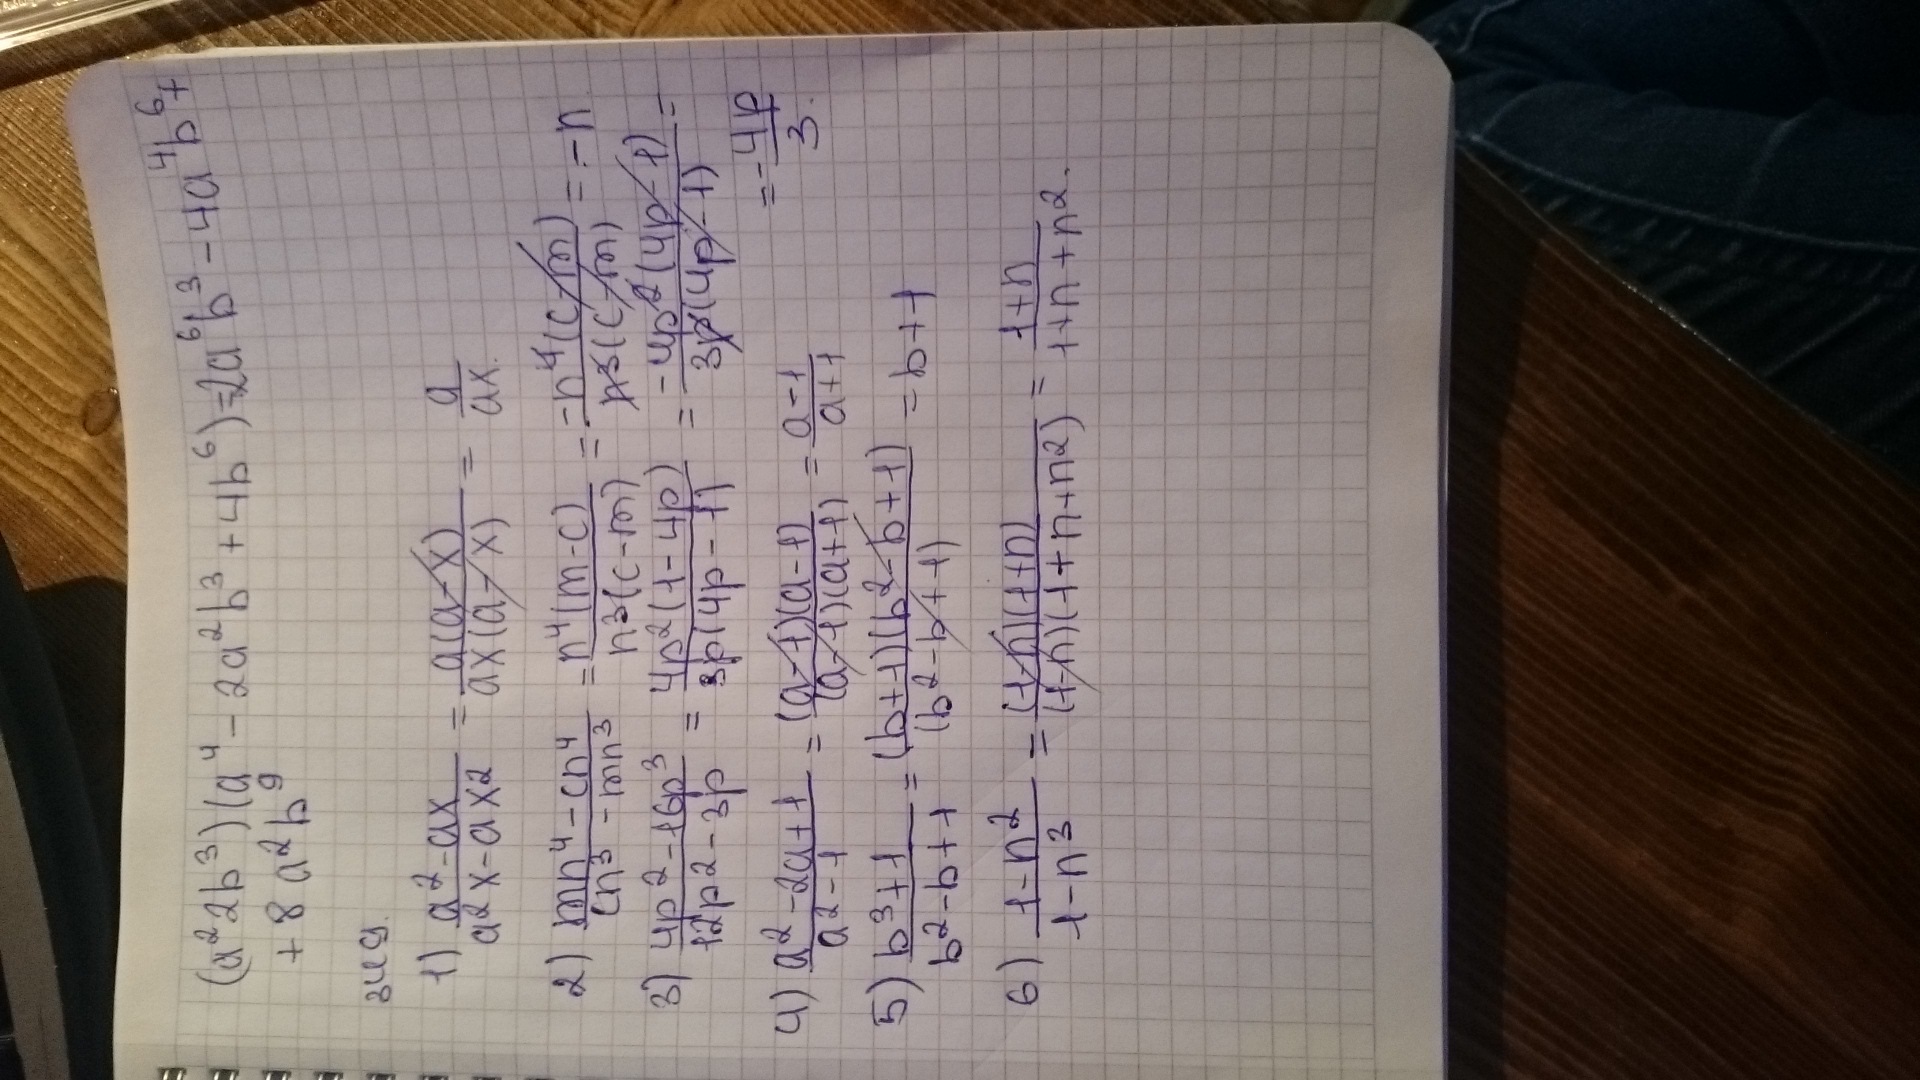 (a²2b³)(a⁴ - 2a²b³ + 4b⁶) = 2a⁶b³ - 4a⁴b⁶ +
+ 8a²b⁹
1) (a² - ax)/(a²x - ax2) = (a(a-x))/(ax(a-x)) = a/ax.
2) (mn⁴ - cn⁴)/(cn³ - mn³) = (n⁴(m-c))/(n³(c-m)) = (-n⁴(c-m))/(n3(c-m)) = -n
3) (4p² - 16p³)/(12p2 - 3p) = (4p²(1-4p))/(3p(4p-1)) = (-4p²(4p-1))/(3p(4p-1)) =
= -4p/3.
4) (a² - 2a + 1)/(a² - 1) = ((a-1)(a-1))/((a-1)(a+1)) = (a-1)/(a+1)
5) (b³ + 1)/(b² - b + 1) = ((b+1)(b² - b + 1))/((b² - b + 1)) = b + 1
6) (1 - n²)/(1 - n³) = ((1-n)(1+n))/((1-n)(1+n+n2)) = (1+n)/(1+n+n2).